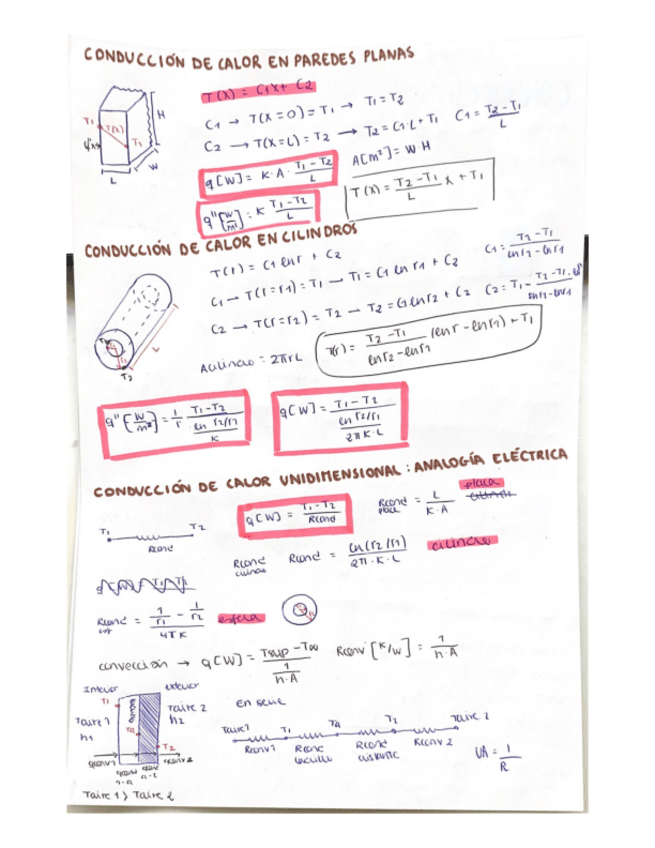 CONDUCCIÓN DE CALOR EN PAREDES PLANAS
T(x) = C1x + C2
C1 → T(x=0) = T1 → T1 = T2
C1 = T2 - T1 / L
C2 → T(x=L) = T2 → T2 = C1·L + T1
H
T1 T(x) T2
q"x
L
W
q[W] = K·A· T1 - T2 / L
A[m²] = W·H
q"[W/m²] = K T1 - T2 / L
T(x) = T2 - T1 / L x + T1
CONDUCCIÓN DE CALOR EN CILINDROS
T(r) = C1 ln r + C2
C1 = T2 - T1 / ln r2 - ln r1
C1 → T(r=r1) = T1 → T1 = C1 ln r1 + C2
C2 → T(r=r2) = T2 → T2 = C1 ln r2 + C2
C2 = T1 -
L
T2
Acilindro = 2πrL
T(r) = T2 - T1 / ln r2 - ln r1 (ln r - ln r1) + T1
q"[W/m²] = 1/r T1 - T2 / ln r2/r1 / K
q[W] = T1 - T2 / ln r2/r1 / 2π·K·L
CONDUCCIÓN DE CALOR UNIDIMENSIONAL: ANALOGÍA ELÉCTRICA
T1 T2
Rcond
q[W] = T1 - T2 / Rcond
Rcond placa = L / K·A
placa
Rcond cilindro
Rcond = ln(r2/r1) / 2π·K·L
cilindro
Rcond esf = 1/r1 - 1/r2 / 4πK
esfera
convección → q[W] = Tsup - T∞ / 1 / h·A
Rconv [K/W] = 1 / h·A
Interior exterior
T1
Taire 1 h1
Taire 2 h2
ladrillo
Ta
T2
qconv1 qcond 1-a qcond a-2 qconv2
Taire 1 > Taire 2
En serie
Taire1 T1 Ta T2 Taire 2
Rconv1 Rcond ladrillo Rcond aislante Rconv 2
UA = 1 / R